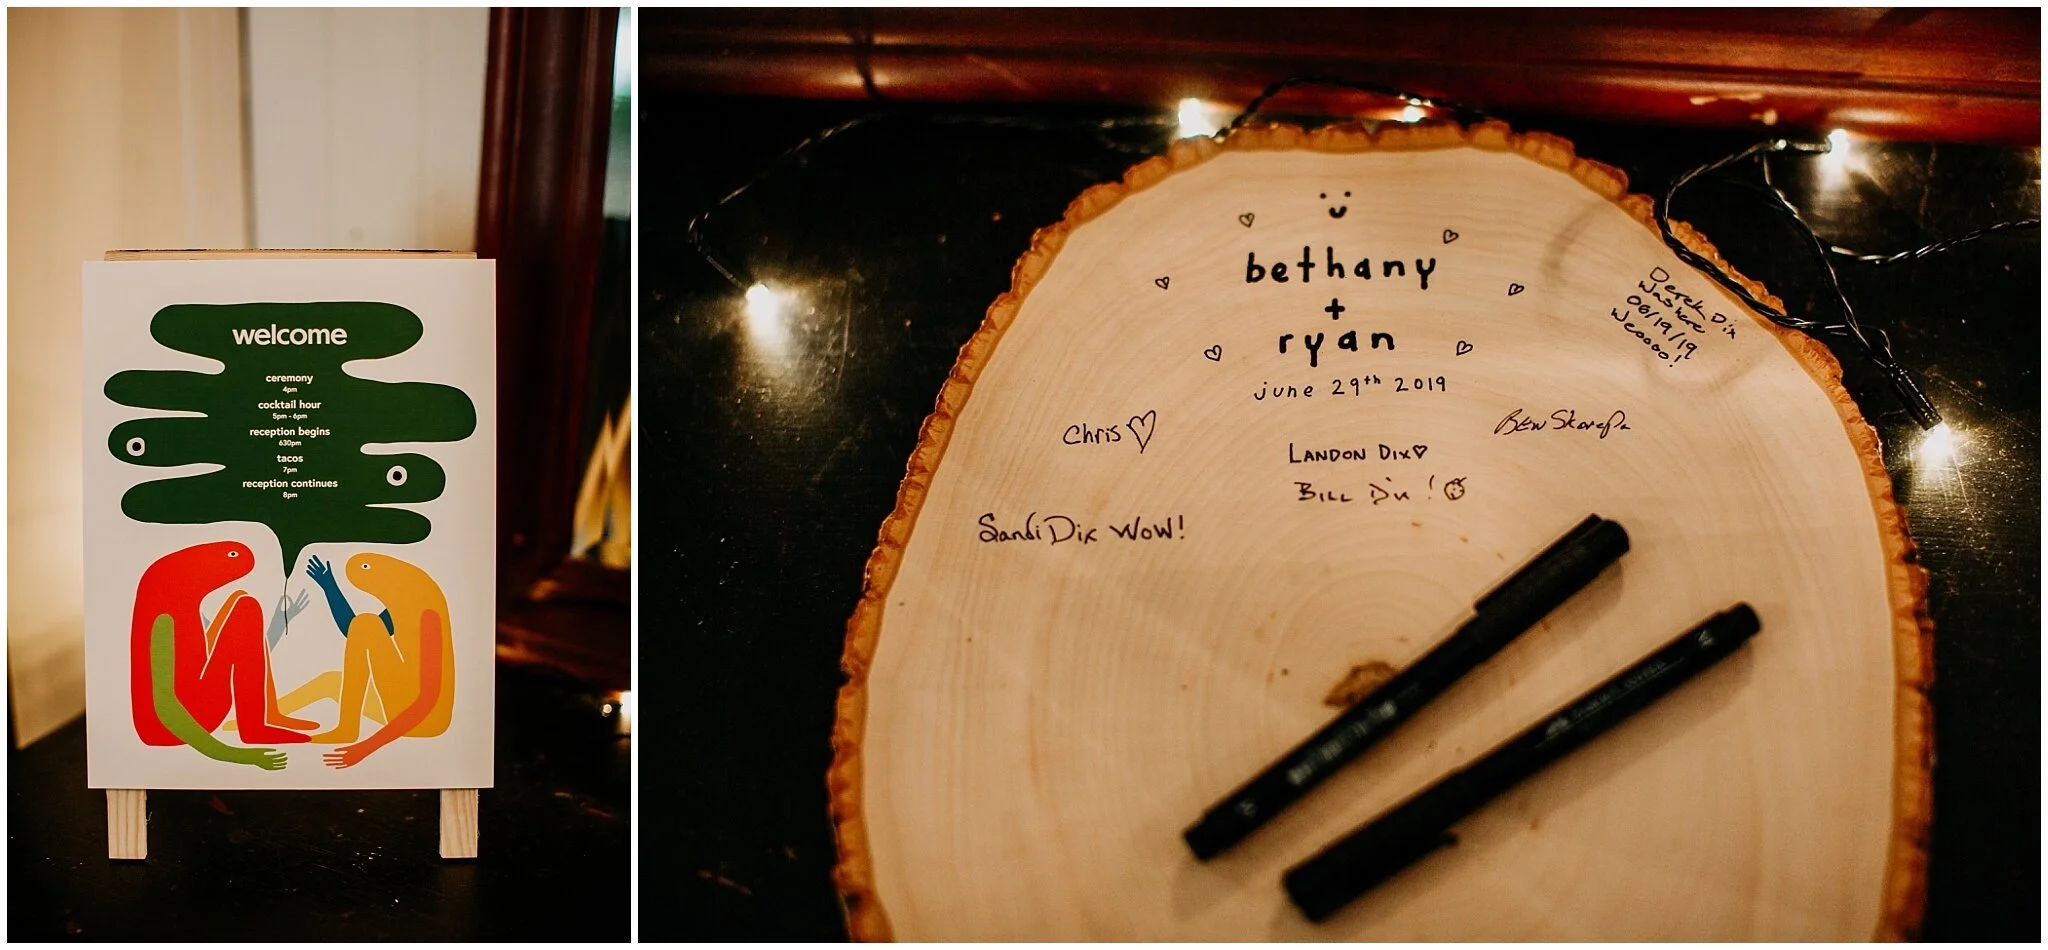 welcome
ceremony
4pm
cocktail hour
5pm - 6pm
reception begins
630pm
tacos
7pm
reception continues
8pm
bethany
+
ryan
june 29th 2019
Derek Dix
Was here
06/19/19
Weoooo!
Chris
Ben
LANDON DIX
BILL Dix !
Sandi Dix WOW!